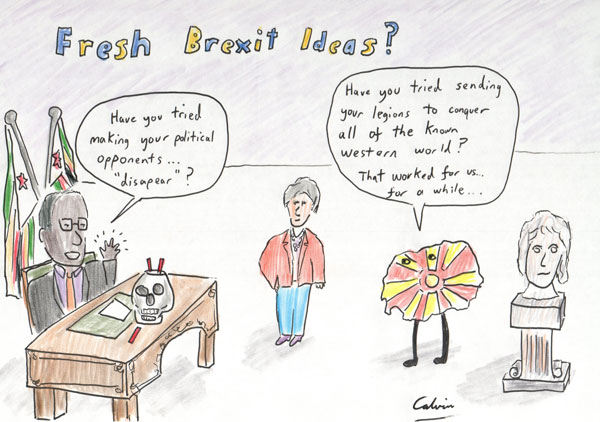 Fresh Brexit Ideas?
Have you tried
making your political
opponents...
"disapear"?
Have you tried sending
your legions to conquer
all of the known
western world?
That worked for us...
for a while...
Calvin